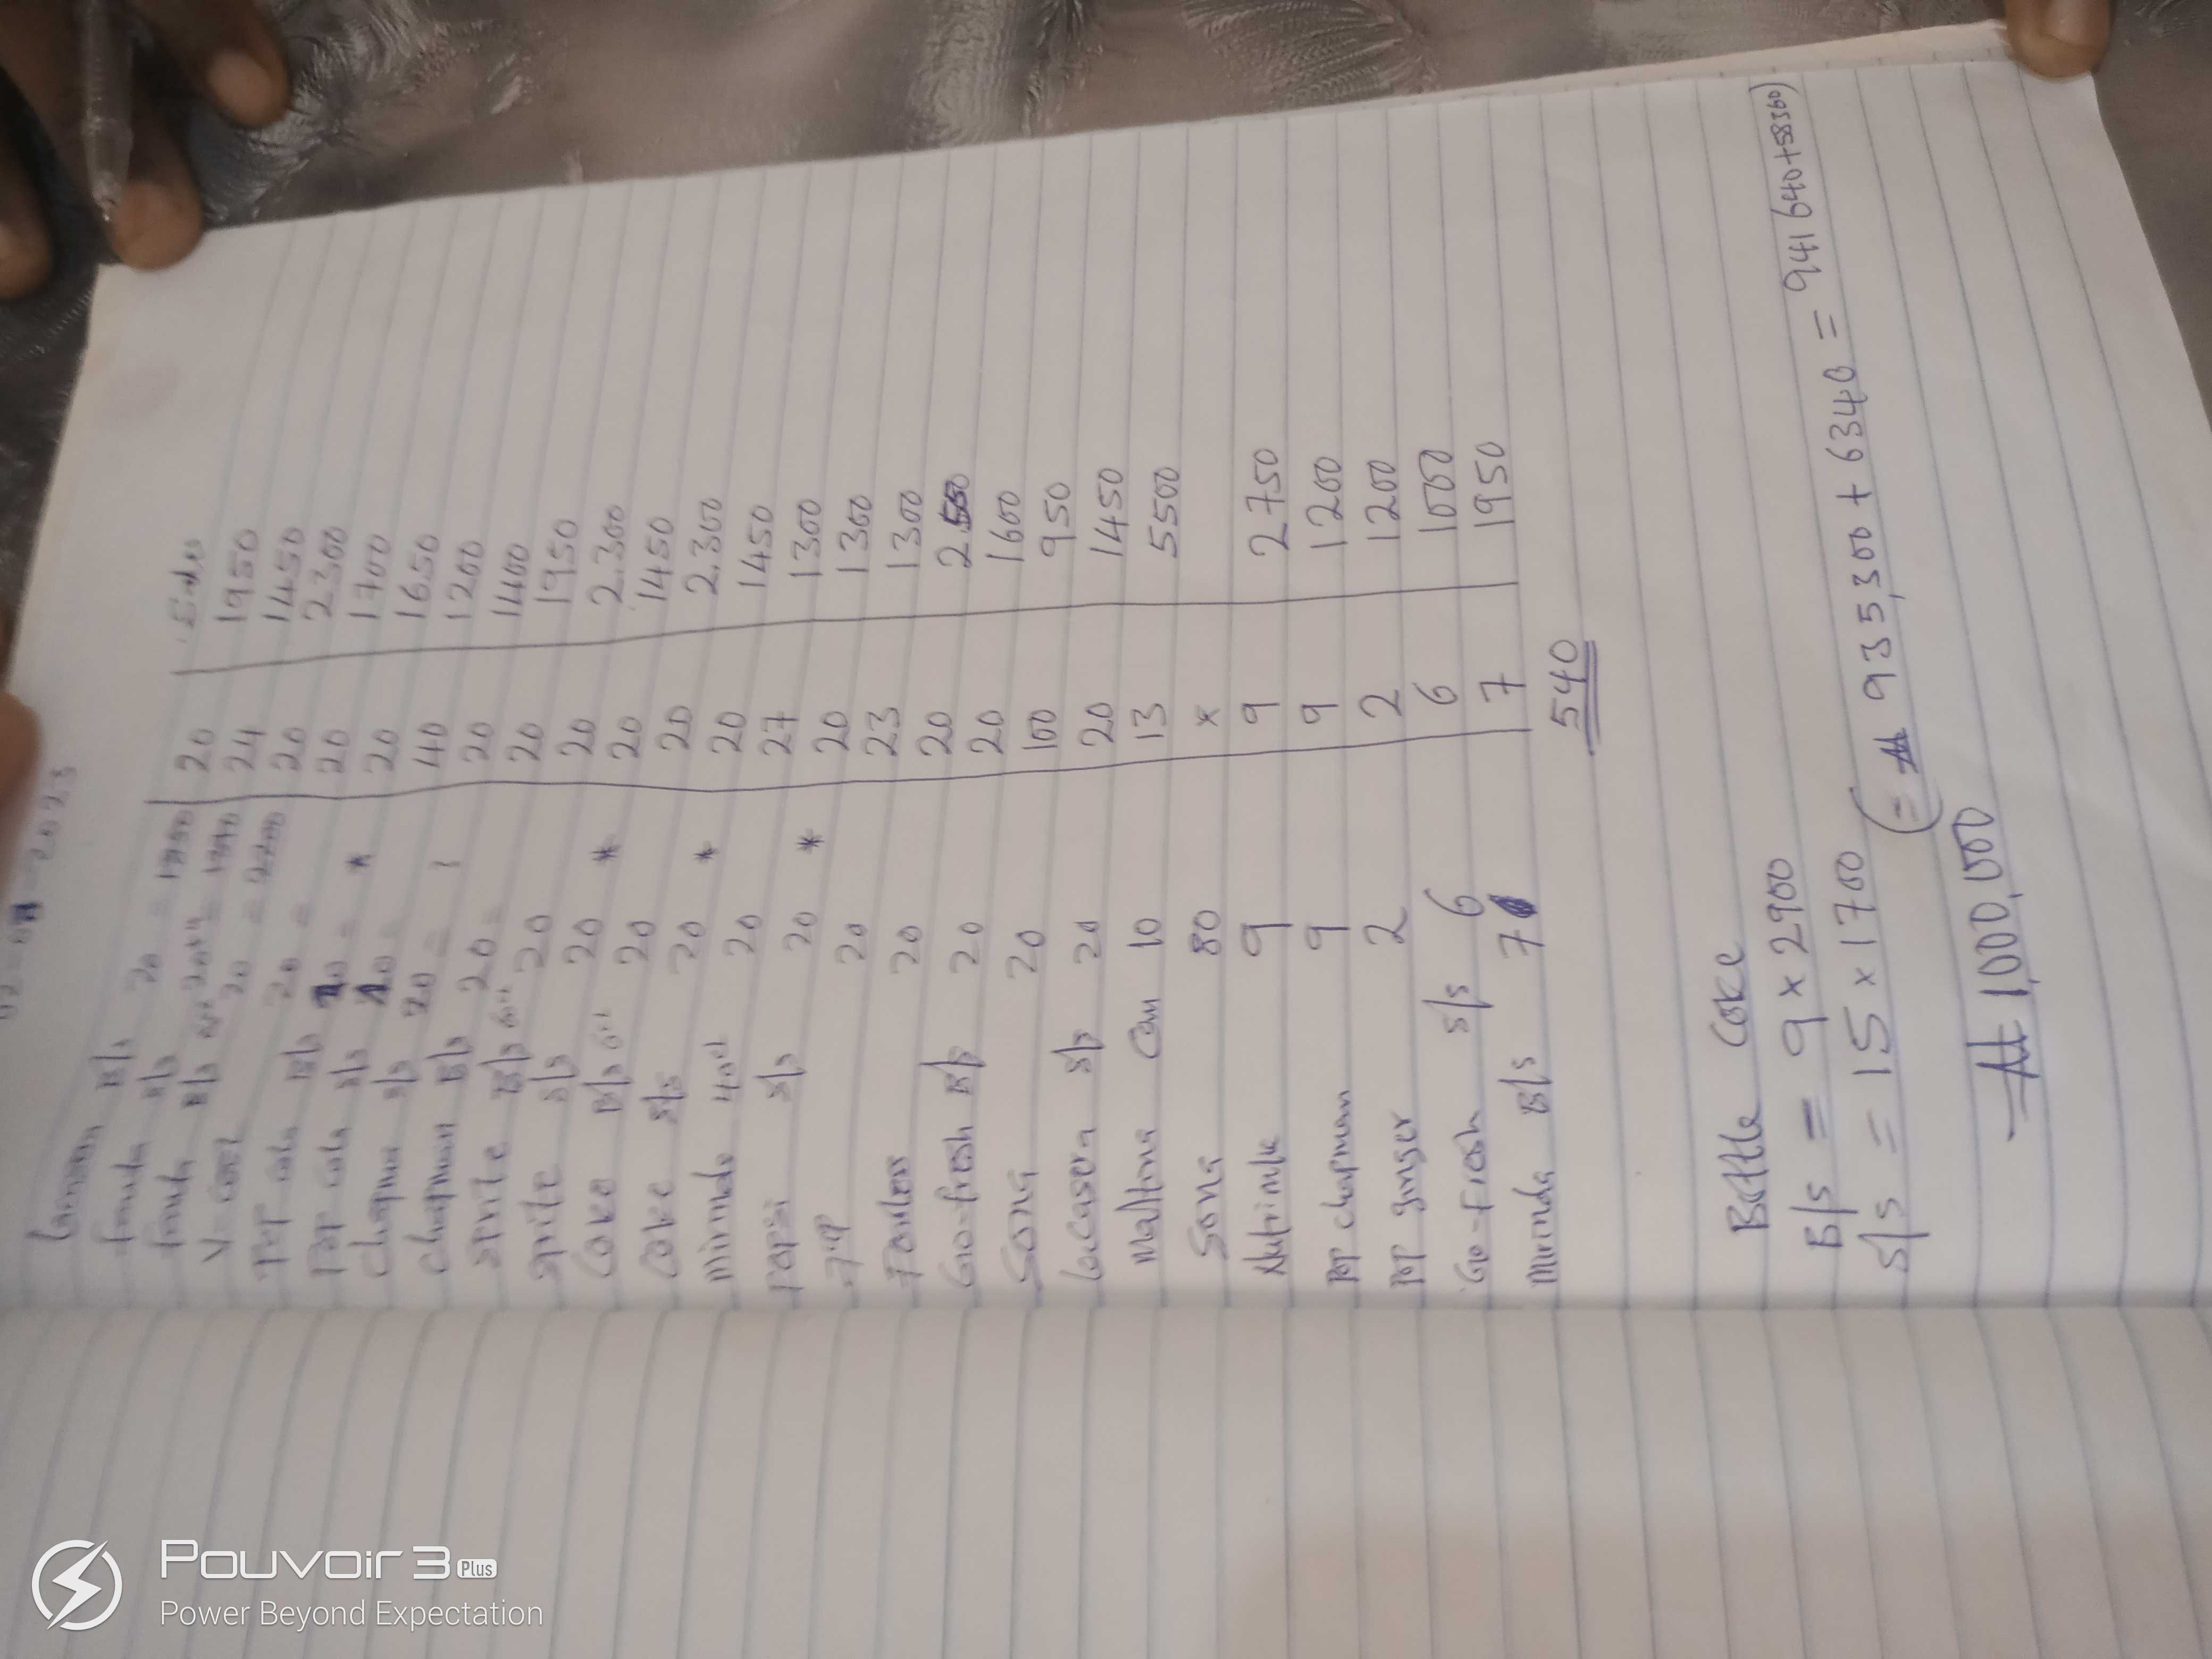 2023
B/s 20 = 20 1950
Fanda B/s 24 1450
Fanda B/s = 20 2300
V-cool 20 = 2200 20 1700
Pop cola B/s 20 = 20 1650
Pop cola s/s = * 40 1200
Chapman s/s = 20 1400
Chapman B/s 20 = 20 1950
Sprite B/s 20 = 20 2.300
Sprite s/s 20 20 1450
Coke B/s 20 * 20 2.300
Coke s/s 20 20 1450
Mirinda 20 * 27 1300
Pepsi s/s 20 20 1300
7up 20 * 23 1300
20 20
Go-fresh B/s 20 20 1600
Sona 20 100 950
Lacasera s/s 20 20 1450
Maltina Can 10 13 5500
Sona 80 x
Nutrimilk 9 9 2750
Pop chapman 9 9 1200
Pop ginger 2 2 1200
Go-Fresh s/s 6 6 1000
Mirinda B/s 7 7 1950
540
Bottle Coke
B/s = 9 x 2900
S/s = 15 x 1700 (= ₦ 935,300 + 6340 = 941640+58360)
₦ 1,000,000
POUVOIR 3 Plus
Power Beyond Expectation